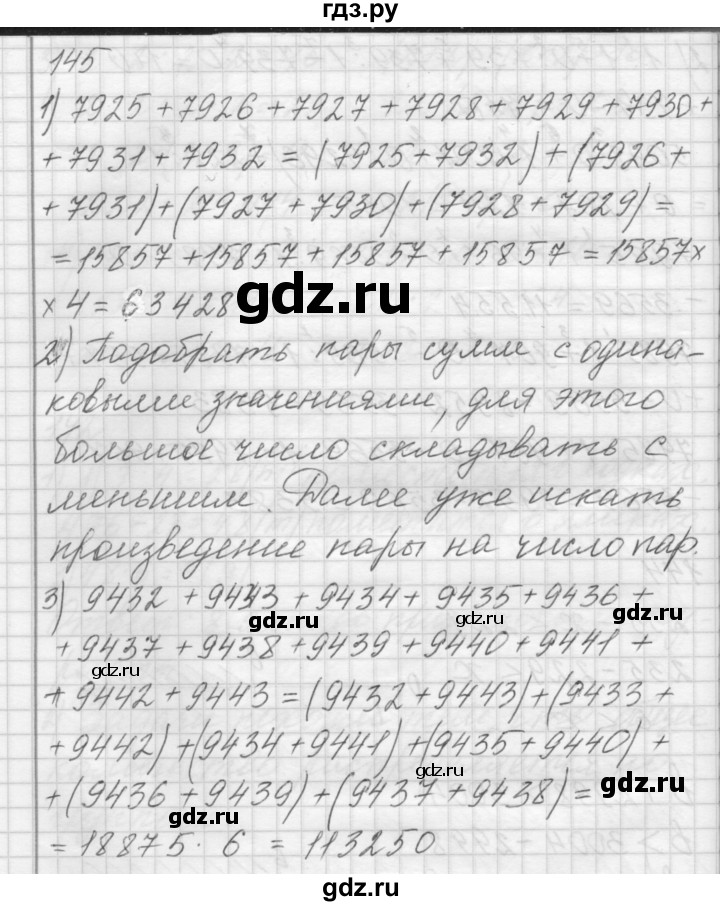 гдз.ру
145
1) 7925 + 7926 + 7927 + 7928 + 7929 + 7930 +
+ 7931 + 7932 = (7925 + 7932) + (7926 +
+ 7931) + (7927 + 7930) + (7928 + 7929) =
= 15857 + 15857 + 15857 + 15857 = 15857 ×
× 4 = 63428
gdz.ru
2) Подобрать пары сумм с одина-
ковыми значениями, для этого
большое число складывать с
меньшим. Далее уже искать
произведение пары на число пар.
3) 9432 + 9443 + 9434 + 9435 + 9436 +
gdz.ru
gdz.ru
+ 9437 + 9438 + 9439 + 9440 + 9441 +
gdz.ru
gdz.ru
+ 9442 + 9443 = (9432 + 9443) + (9433 +
+ 9442) + (9434 + 9441) + (9435 + 9440) +
gdz.ru
+ (9436 + 9439) + (9437 + 9438) =
gdz.ru
gdz.ru
= 18875 · 6 = 113250
gdz.ru